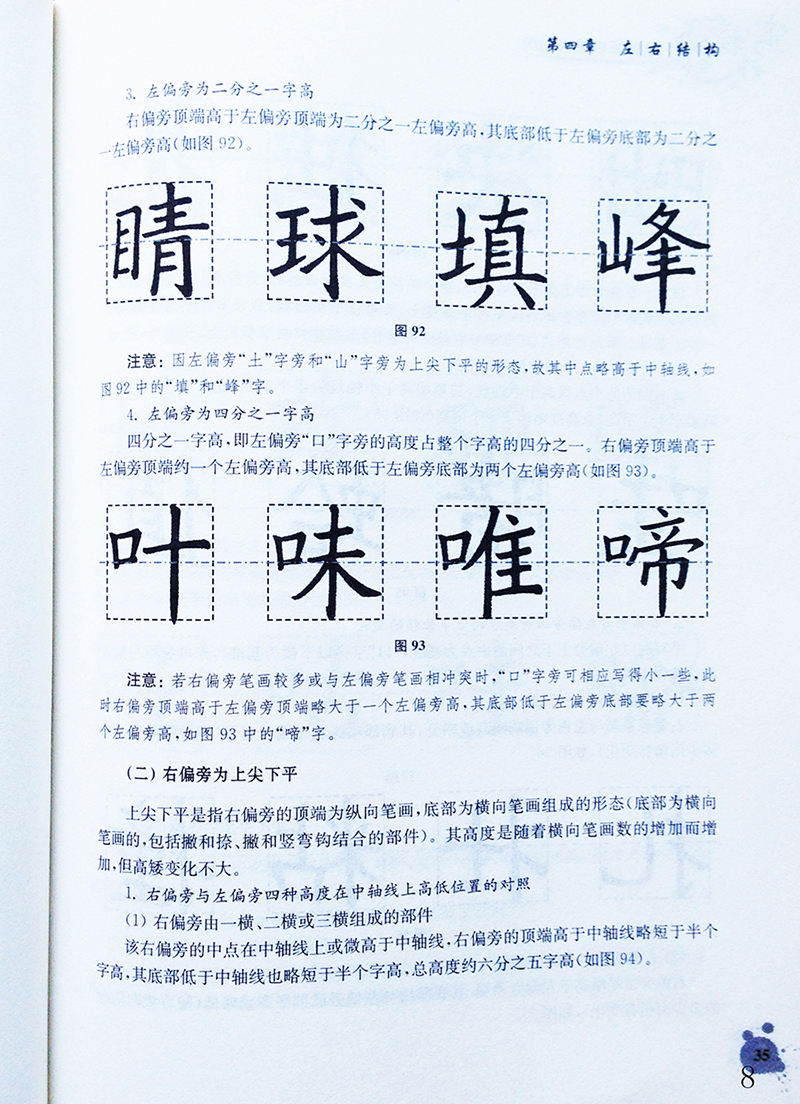 第四章 左|右|结|构
3. 左偏旁为二分之一字高
右偏旁顶端高于左偏旁顶端为二分之一左偏旁高，其底部低于左偏旁底部为二分之
一左偏旁高（如图92）。
睛 球 填 峰
图92
注意：因左偏旁“土”字旁和“山”字旁为上尖下平的形态，故其中点略高于中轴线，如
图92中的“填”和“峰”字。
4. 左偏旁为四分之一字高
四分之一字高，即左偏旁“口”字旁的高度占整个字高的四分之一。右偏旁顶端高于
左偏旁顶端约一个左偏旁高，其底部低于左偏旁底部为两个左偏旁高（如图93）。
叶 味 唯 啼
图93
注意：若右偏旁笔画较多或与左偏旁笔画相冲突时，“口”字旁可相应写得小一些，此
时右偏旁顶端高于左偏旁顶端略大于一个左偏旁高，其底部低于左偏旁底部要略大于两
个左偏旁高，如图93中的“啼”字。
（二）右偏旁为上尖下平
上尖下平是指右偏旁的顶端为纵向笔画，底部为横向笔画组成的形态（底部为横向
笔画的，包括撇和捺、撇和竖弯钩结合的部件）。其高度是随着横向笔画数的增加而增
加，但高矮变化不大。
1. 右偏旁与左偏旁四种高度在中轴线上高低位置的对照
（1）右偏旁由一横、二横或三横组成的部件
该右偏旁的中点在中轴线上或微高于中轴线，右偏旁的顶端高于中轴线略短于半个
字高，其底部低于中轴线也略短于半个字高，总高度约六分之五字高（如图94）。
35
8